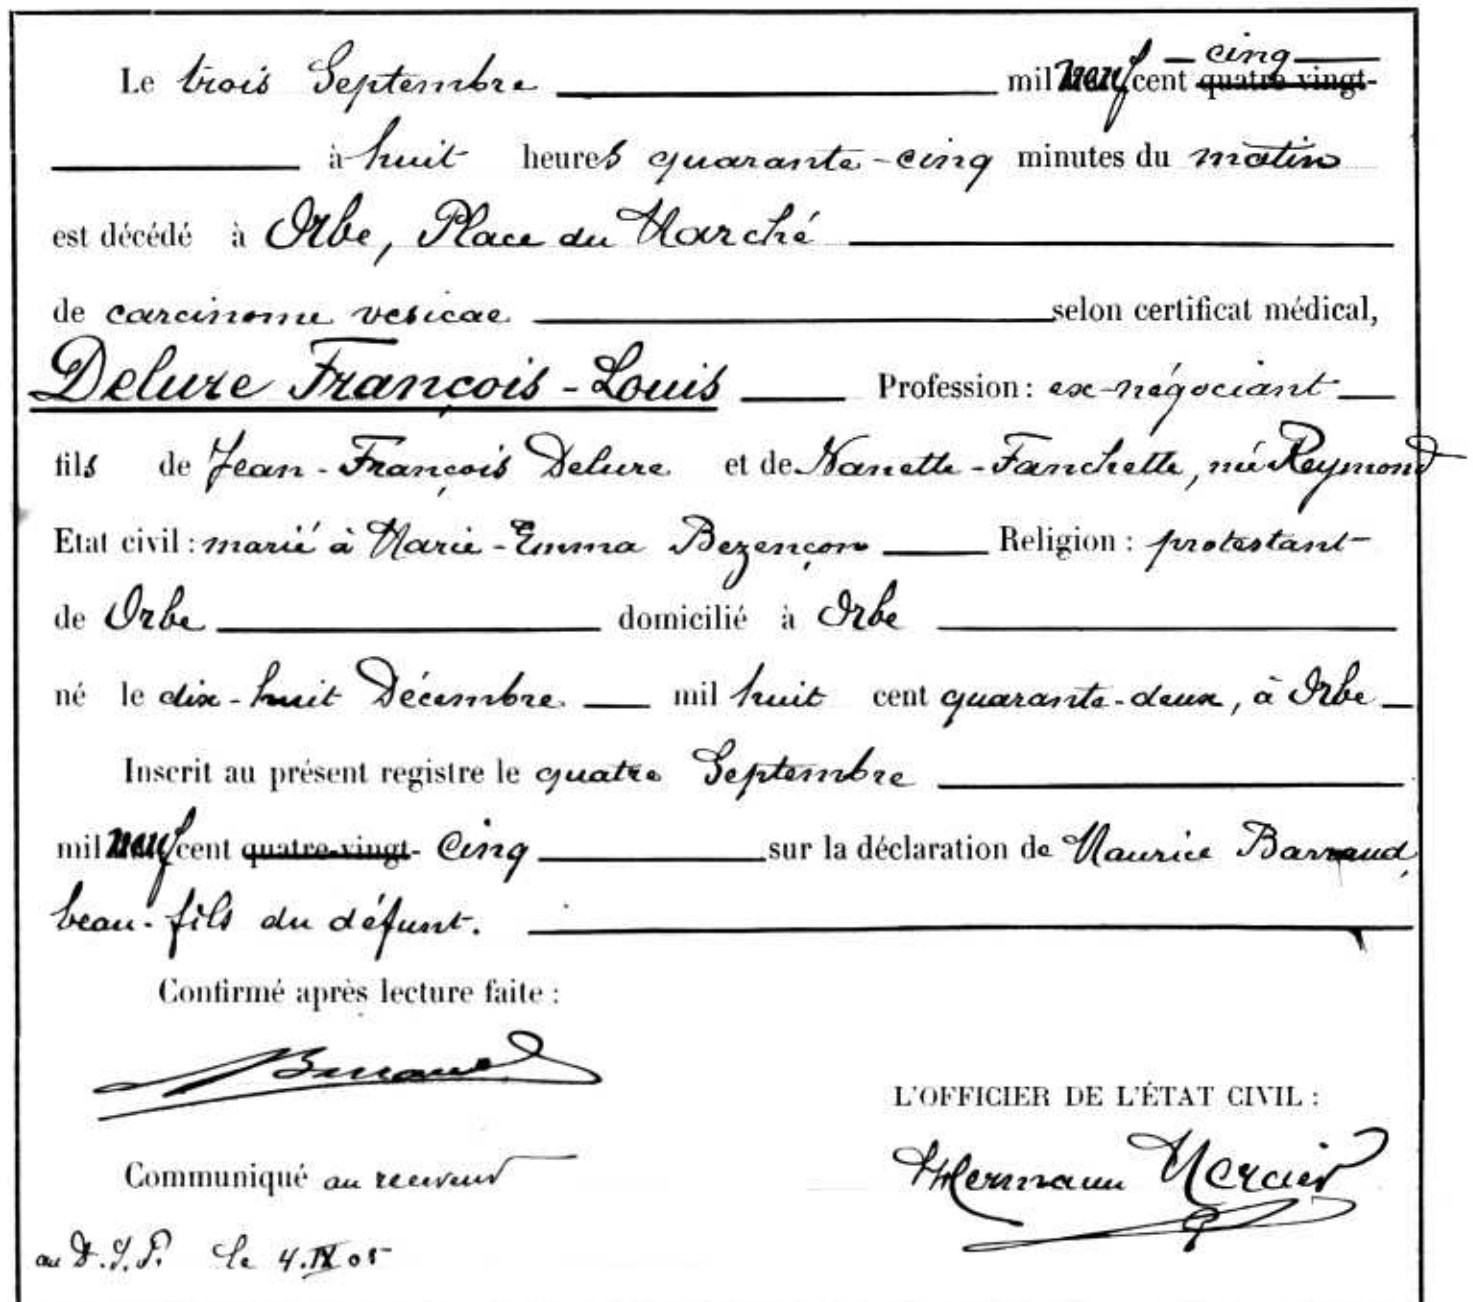 Le trois Septembre mil neuf cent quatre-vingt- cinq
à huit heures quarante-cinq minutes du matin
est décédé à Orbe, Place du Marché
de carcinome vesicae selon certificat médical,
Delure François-Louis Profession : ex-négociant
fils de Jean-François Delure et de Nanette-Fanchette, née Reymond
Etat civil : marié à Marie-Emma Bezençon Religion : protestant
de Orbe domicilié à Orbe
né le dix-huit Décembre mil huit cent quarante-deux, à Orbe
Inscrit au présent registre le quatre Septembre
mil neuf cent quatre-vingt- cinq sur la déclaration de Maurice Barraud,
beau-fils du défunt.
Confirmé après lecture faite :
Barraud
L'OFFICIER DE L'ÉTAT CIVIL :
Hermann Mercier
Communiqué au receveur
au D.J.P. le 4.IX 05